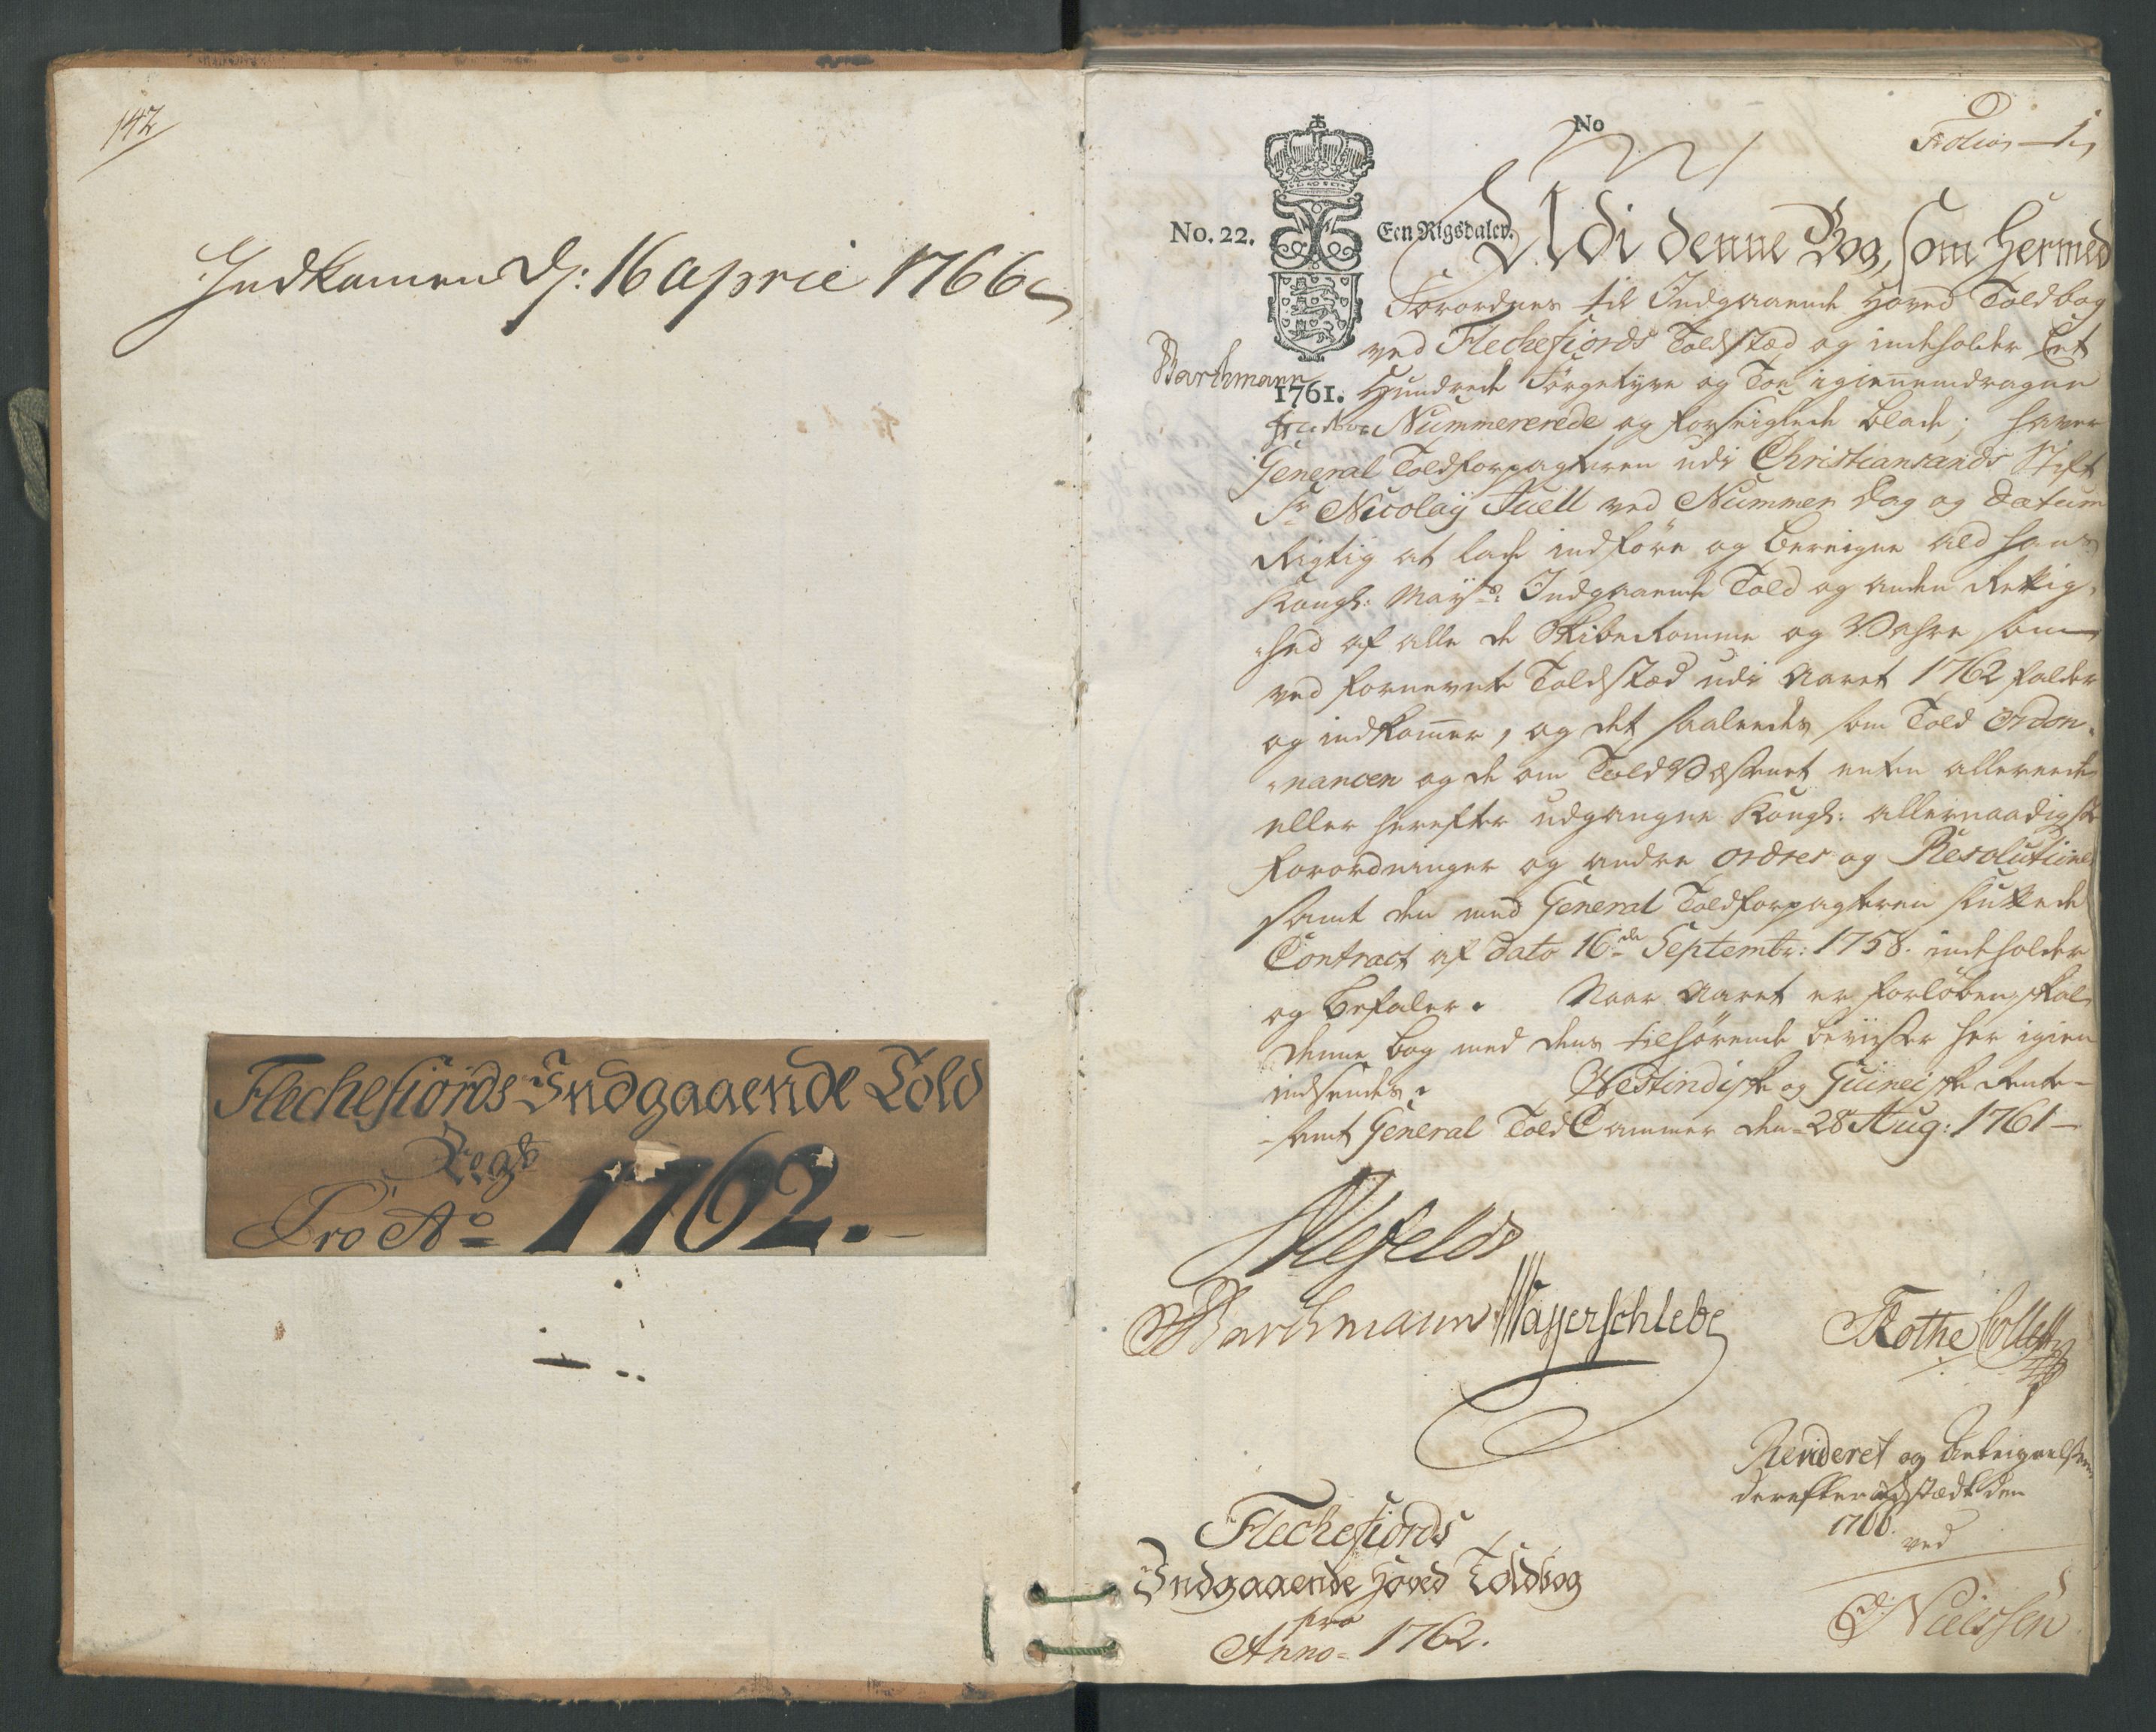 142
Indkommen d: 16 april 1766
Flechefiords Indgaaende Told
Regst
Pro Ao 1762.
No
Folio 1
No. 22.
Een Rigsdaler.
1761.
Barthmann
Udi denne Bog, som hermed
Forordnes til Indgaaende Hoved Toldbog
ved Flechefiords Toldstæd og indeholder Eet
HundredeFörgetyve og Toe igiennemdragne
Nummererede og forseiglede blade; haver
General Toldforpagteren udi Christiansands Stift
Sr. Nicolaÿ Juell ved Nummer Dag og Datum
Rigtig at lade indføre og beregne ald hans
Kongl: Mayts: Indgaaende Told og anden Rettig-
hed af alle de Skibe komme og Vahre som
ved fornevnte Toldstæd udi Aaret 1762 falder
og indkomer, og det saaledes som Told Ordon-
nancen og de om Told Væsenet enten allereede
eller herefter udgangne Kongl: allernaadigste
forordninger og andre ordres og Resolutioner
samt den med General Toldforpagteren sluttede
Contract af dato 16de Septembr: 1758. indeholder
og befaler. Naar Aaret er forløben, skal
denne bog med dens tilhørende beviiser her igien
indsendes. Westindiske og Guineiske Rente-
samt General Told Cammer den 28 Aug: 1761
Ahlefeldt
Barthmann
Rothe
Collett
Flechefiords
Indgaaende Hoved Toldbog
pro
Anno 1762.
Revideret og Antegnelserne
derefter udstædt den
1766.
ved
Nielssen